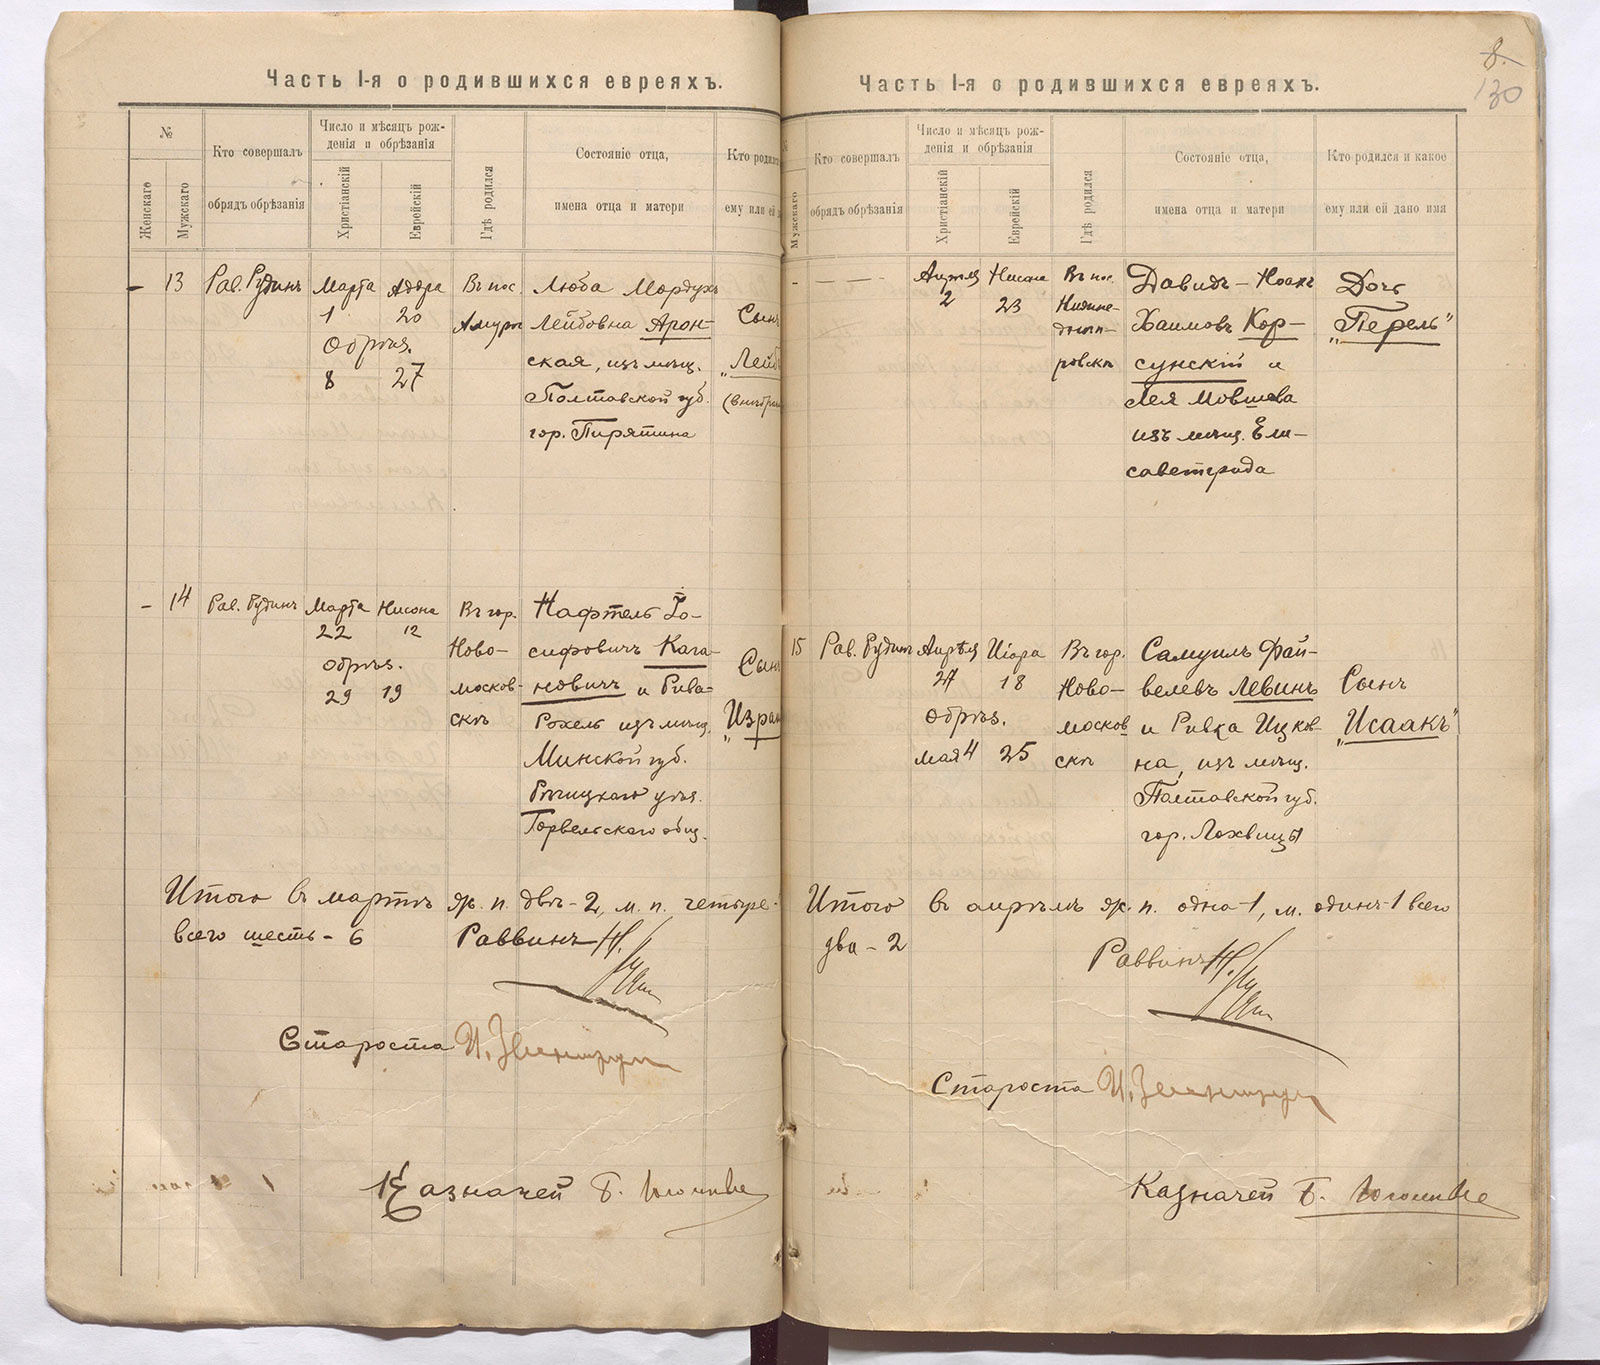 Часть I-я о родившихся евреяхъ.
№
Женскаго
Мужскаго
Кто совершалъ
обрядъ обрѣзанія
Число и мѣсяцъ рож-
денія и обрѣзанія
Христіанскій
Еврейскій
Гдѣ родился
Состояніе отца,
имена отца и матери
Кто родился
ему или ей
13
Рав. Рудинъ
Марта
1
Обрѣз.
8
Адара
20
27
Въ пос.
Амуръ
Люба Мордухъ
Лейбовна Арон-
ская, изъ мѣщ.
Полтавской губ.
гор. Пирятина
Сынъ
„Лейб
14
Рав. Рудинъ
Марта
22
обрѣз.
29
Нисона
12
19
Въ гор.
Ново-
москов-
скъ
Нафтель Іо-
сифовичъ Кага-
новичъ и Рива-
Рохель изъ мѣщ.
Минской губ.
Рѣчицкаго уѣз.
Горвельскаго общ.
Сынъ
„Изра
Итого въ мартѣ ж. п. двѣ-2, м. п. четыре-
всего шесть - 6 Раввинъ
Староста
Казначей Б.
8.
130
Часть I-я о родившихся евреяхъ.
Мужскаго
Кто совершалъ
обрядъ обрѣзанія
Число и мѣсяцъ рож-
денія и обрѣзанія
Христіанскій
Еврейскій
Гдѣ родился
Состояніе отца,
имена отца и матери
Кто родился и какое
ему или ей дано имя
Апрѣля
2
Нисона
23
Въ пос.
Нижне-
днѣп-
ровскъ
Давидъ-Ноахъ
Хаимовъ Кор-
сунскій и
Лея Мовшева
изъ мѣщ. Ели-
саветграда
Дочь
„Перель"
15
Рав. Рудинъ
Апрѣля
27
обрѣз.
мая 4
Иіара
18
25
Въ гор.
Ново-
москов
скъ
Самуилъ Фай-
велевъ Левинъ
и Ривка Ицков-
на, изъ мѣщ.
Полтавской губ.
гор. Лохвицы
Сынъ
„Исаакъ"
Итого въ апрѣлѣ ж. п. одна-1, м. одинъ-1 всего
два - 2
Раввинъ
Староста
Казначей Б.